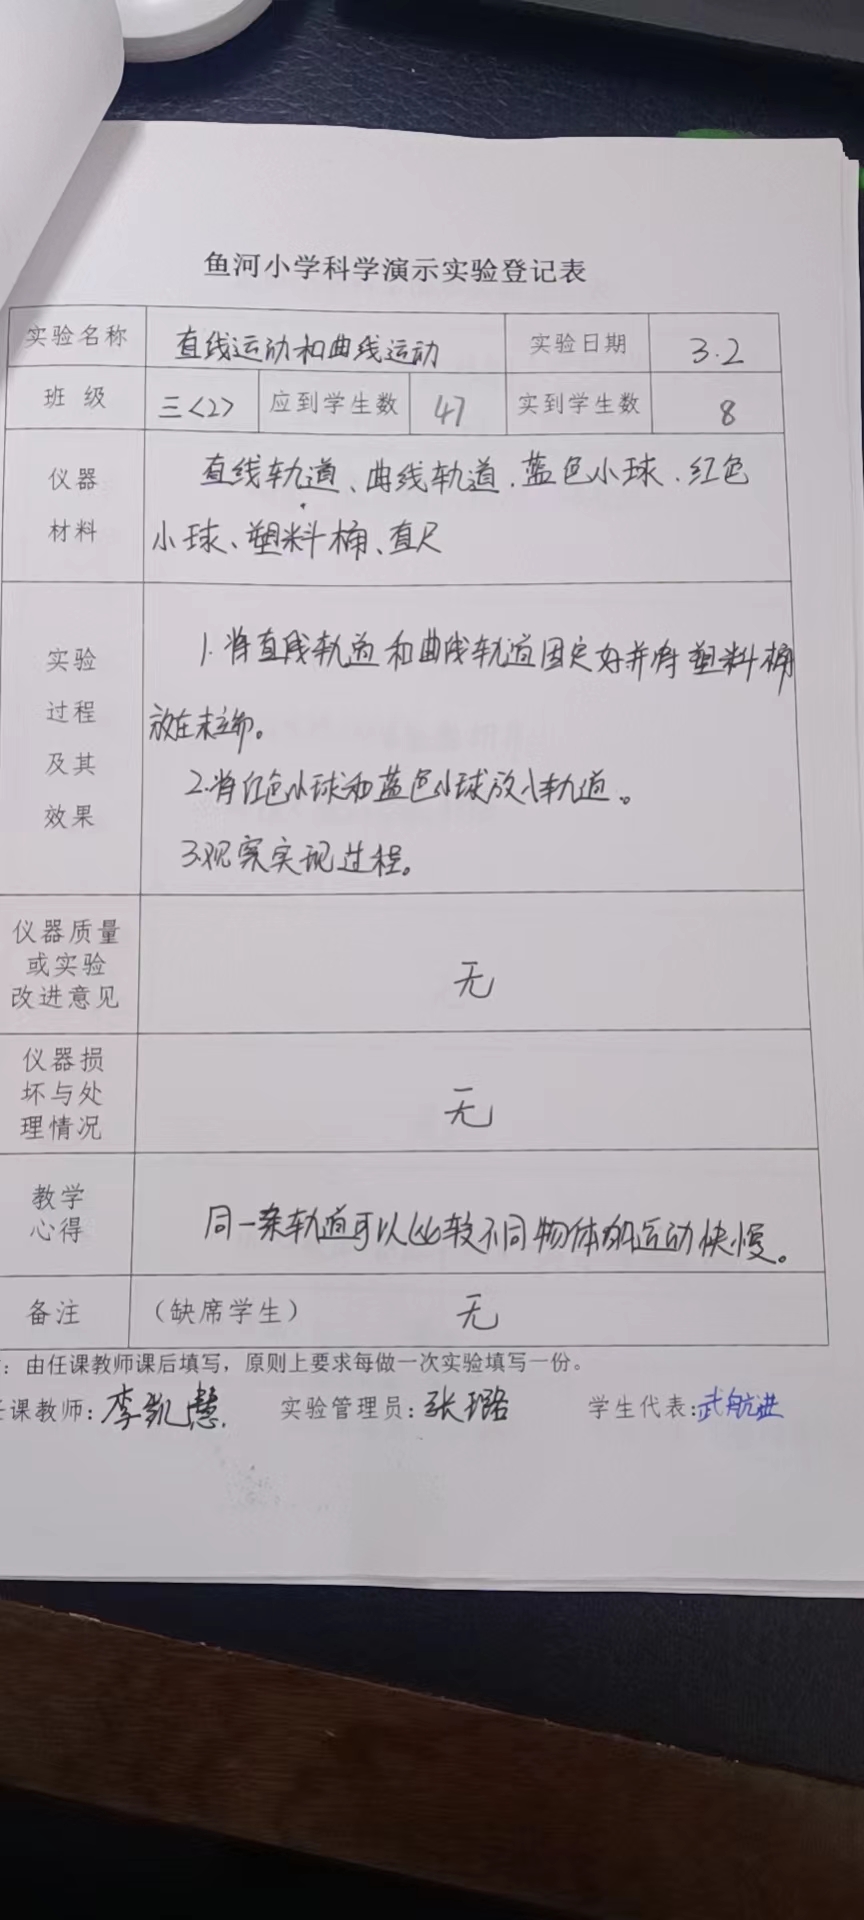 鱼河小学科学演示实验登记表
实验名称 直线运动和曲线运动 实验日期 3.2
班 级 三<2> 应到学生数 47 实到学生数 8
仪器
材料
直线轨道、曲线轨道、蓝色小球、红色
小球、塑料桶、直尺
实验
过程
及其
效果
1.将直线轨道和曲线轨道固定好并将塑料桶
放在末端。
2.将红色小球和蓝色小球放入轨道。
3.观察实现过程。
仪器质量
或实验
改进意见
无
仪器损
坏与处
理情况
无
教学
心得
同一条轨道可以比较不同物体的运动快慢。
备注 (缺席学生) 无
：由任课教师课后填写，原则上要求每做一次实验填写一份。
任课教师：李凯慧 实验管理员：张璐 学生代表：武航进